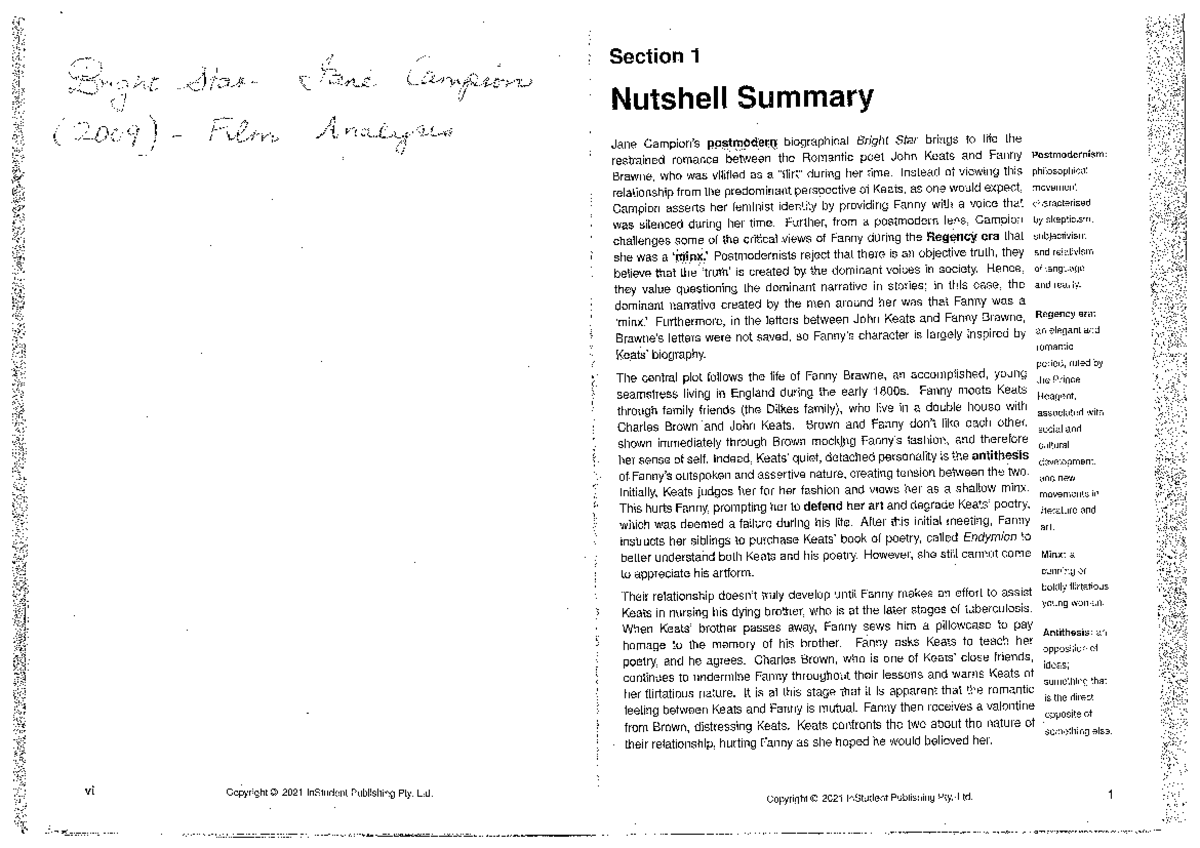 Bright Star - Jane Campion
(2009) - Film Analysis
vi
Copyright © 2021 InStudent Publishing Pty. Ltd.
Section 1
Nutshell Summary
Jane Campion's postmodern biographical Bright Star brings to life the
restrained romance between the Romantic poet John Keats and Fanny
Brawne, who was vilified as a "flirt" during her time. Instead of viewing this
relationship from the predominant perspective of Keats, as one would expect,
Campion asserts her feminist identity by providing Fanny with a voice that
was silenced during her time. Further, from a postmodern lens, Campion
challenges some of the critical views of Fanny during the Regency era that
she was a 'minx.' Postmodernists reject that there is an objective truth, they
believe that the 'truth' is created by the dominant voices in society. Hence,
they value questioning the dominant narrative in stories; in this case, the
dominant narrative created by the men around her was that Fanny was a
'minx.' Furthermore, in the letters between John Keats and Fanny Brawne,
Brawne's letters were not saved, so Fanny's character is largely inspired by
Keats' biography.
The central plot follows the life of Fanny Brawne, an accomplished, young
seamstress living in England during the early 1800s. Fanny meets Keats
through family friends (the Dilkes family), who live in a double house with
Charles Brown and John Keats. Brown and Fanny don't like each other,
shown immediately through Brown mocking Fanny's fashion, and therefore
her sense of self. Indeed, Keats' quiet, detached personality is the antithesis
of Fanny's outspoken and assertive nature, creating tension between the two.
Initially, Keats judges her for her fashion and views her as a shallow minx.
This hurts Fanny, prompting her to defend her art and degrade Keats' poetry,
which was deemed a failure during his life. After this initial meeting, Fanny
instructs her siblings to purchase Keats' book of poetry, called Endymion to
better understand both Keats and his poetry. However, she still cannot come
to appreciate his artform.
Their relationship doesn't truly develop until Fanny makes an effort to assist
Keats in nursing his dying brother, who is at the later stages of tuberculosis.
When Keats' brother passes away, Fanny sews him a pillowcase to pay
homage to the memory of his brother. Fanny asks Keats to teach her
poetry, and he agrees. Charles Brown, who is one of Keats' close friends,
continues to undermine Fanny throughout their lessons and warns Keats of
her flirtatious nature. It is at this stage that it is apparent that the romantic
feeling between Keats and Fanny is mutual. Fanny then receives a valentine
from Brown, distressing Keats. Keats confronts the two about the nature of
their relationship, hurting Fanny as she hoped he would believed her.
Postmodernism:
philosophical
movement
characterised
by skepticism,
subjectivism
and relativism
of language
and reality.
Regency era:
an elegant and
romantic
period, ruled by
the Prince
Reagent,
associated with
social and
cultural
development,
and new
movements in
literature and
art.
Minx: a
cunning or
boldly flirtatious
young woman.
Antithesis: an
opposition of
ideas;
something that
is the direct
opposite of
something else.
Copyright © 2021 InStudent Publishing Pty. Ltd.
1